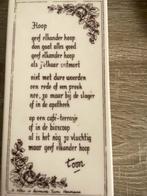 Hoop
geef elkander hoop
dan gaat alles goed
geef elkander hoop
als je elkaar ontmoet
niet met dure woorden
een rede of een preek
nee, zo maar bij de slager
of in de apotheek
op een café-terrasje
of in de bioscoop
al is het nòg zo vluchtig
maar geef elkander hoop
toon